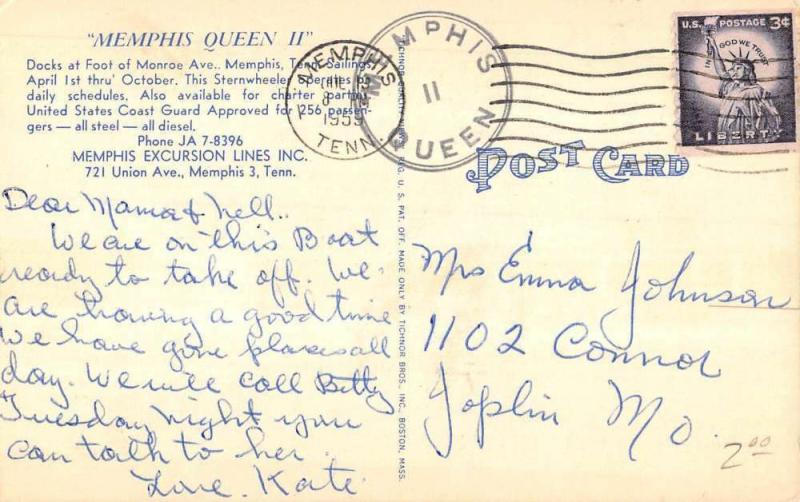 "MEMPHIS QUEEN II"
Docks at Foot of Monroe Ave.. Memphis, Tenn. Sailings
April 1st thru' October. This Sternwheeler operates on
daily schedules. Also available for charter parties.
United States Coast Guard Approved for 256 passen-
gers — all steel — all diesel.
Phone JA 7-8396
MEMPHIS EXCURSION LINES INC.
721 Union Ave., Memphis 3, Tenn.
Dear Mama & Nell..
We are on this Boat
ready to take off. We
are having a good time
We have gone places all
day. We will call Betty
Tuesday night you
can talk to her.
Love. Kate
MEMPHIS
TENN.
1959
MEMPHIS
II
QUEEN
U.S. POSTAGE 3¢
IN GOD WE TRUST
LIBERTY
POST CARD
REG. U. S. PAT. OFF. MADE ONLY BY TICHNOR BROS., INC., BOSTON, MASS.
Mrs Emma Johnson
1102 Connor
Joplin Mo.
2.00